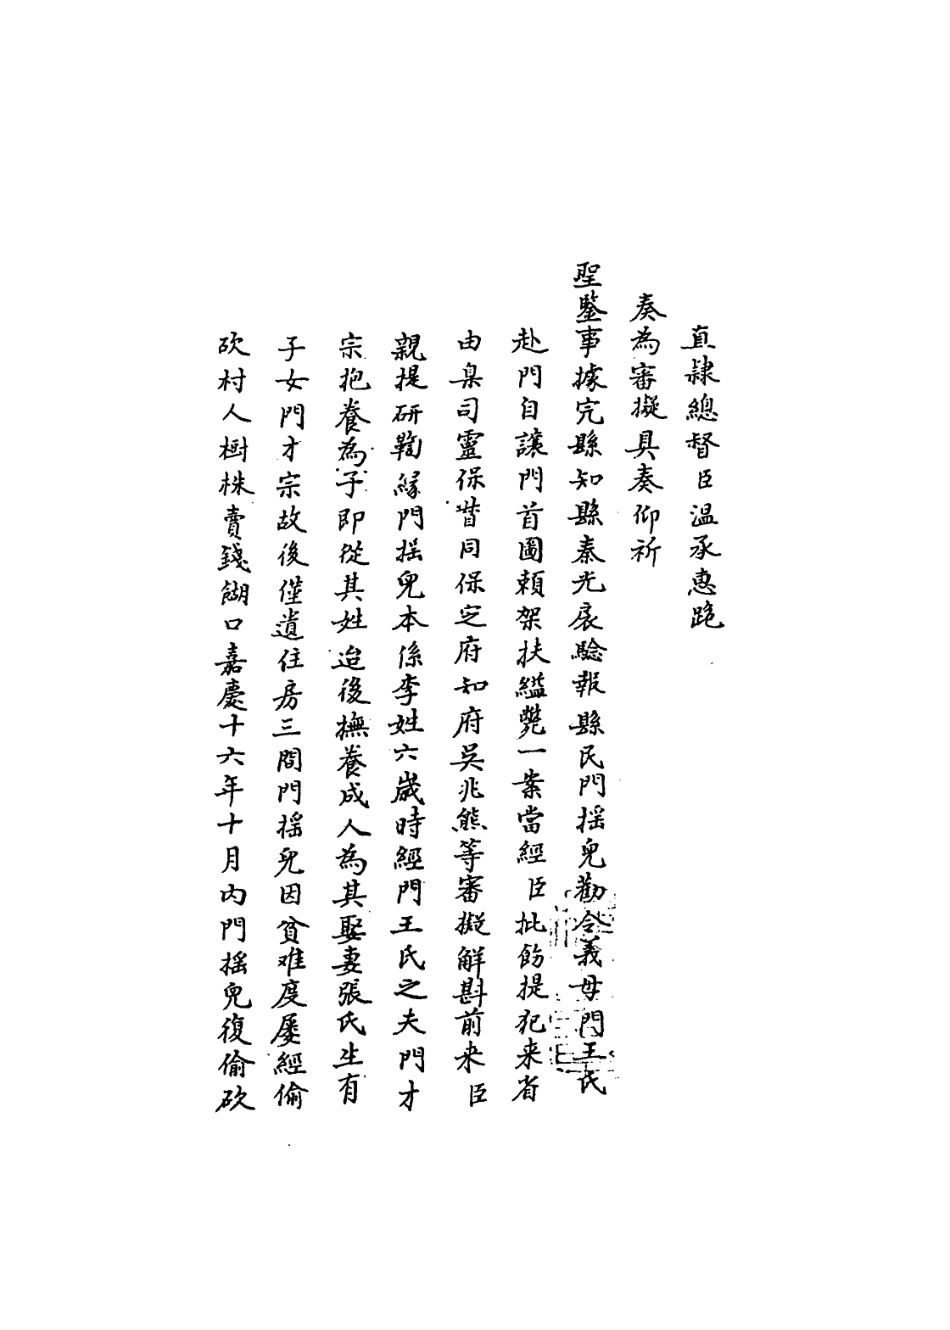 直隸總督臣溫承惠跪
奏為審擬具奏仰祈
聖鑒事據完縣知縣秦光扆驗報縣民門搖兒勸令義母門王氏
赴門自讓門首圖賴架扶縊斃一案當經臣批飭提犯來省
由臬司靈保督同保定府知府吳兆熊等審擬解勘前來臣
親提研鞫緣門搖兒本係李姓六歲時經門王氏之夫門才
宗抱養為子即從其姓迨後撫養成人為其娶妻張氏生有
子女門才宗故後僅遺住房三間門搖兒因貧难度屢經偷
砍村人樹株賣錢餬口嘉慶十六年十月內門搖兒復偷砍